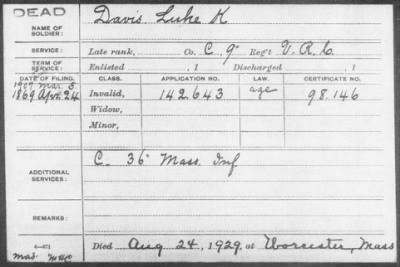 DEAD
NAME OF SOLDIER:
Davis Luke K
SERVICE:
Late rank, Co. C. 9" Reg't V. R. C.
TERM OF SERVICE:
Enlisted , 1 Discharged , 1
DATE OF FILING. CLASS. APPLICATION NO. LAW. CERTIFICATE NO.
1907 Mar. 5
1869 Apr. 24 Invalid, 142.643 age 98.146
Widow,
Minor,
C. 36" Mass. Inf
ADDITIONAL SERVICES:
REMARKS:
Died Aug 24, 1929, at Worcester, Mass
Mas.